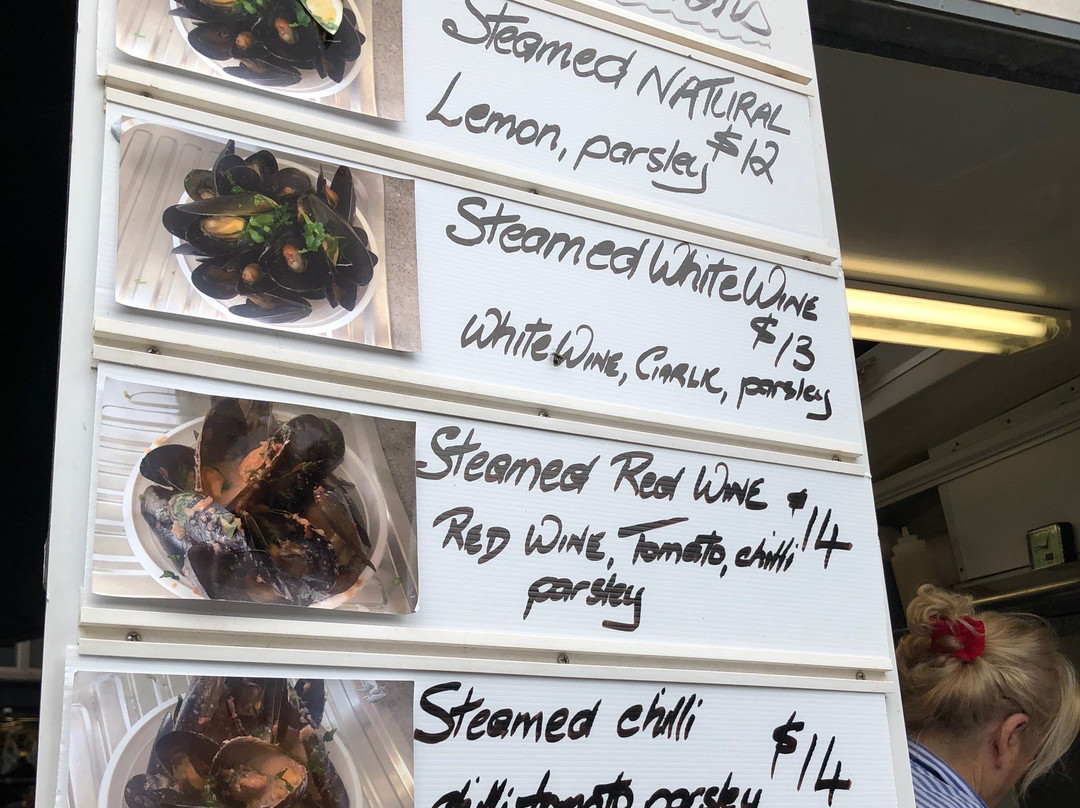 Steamed NATURAL
Lemon, parsley $12
Steamed White Wine
$13
White Wine, Garlic, parsley
Steamed Red Wine $14
Red Wine, Tomato, chilli
parsley
Steamed chilli
$14
chilli tomato parsley